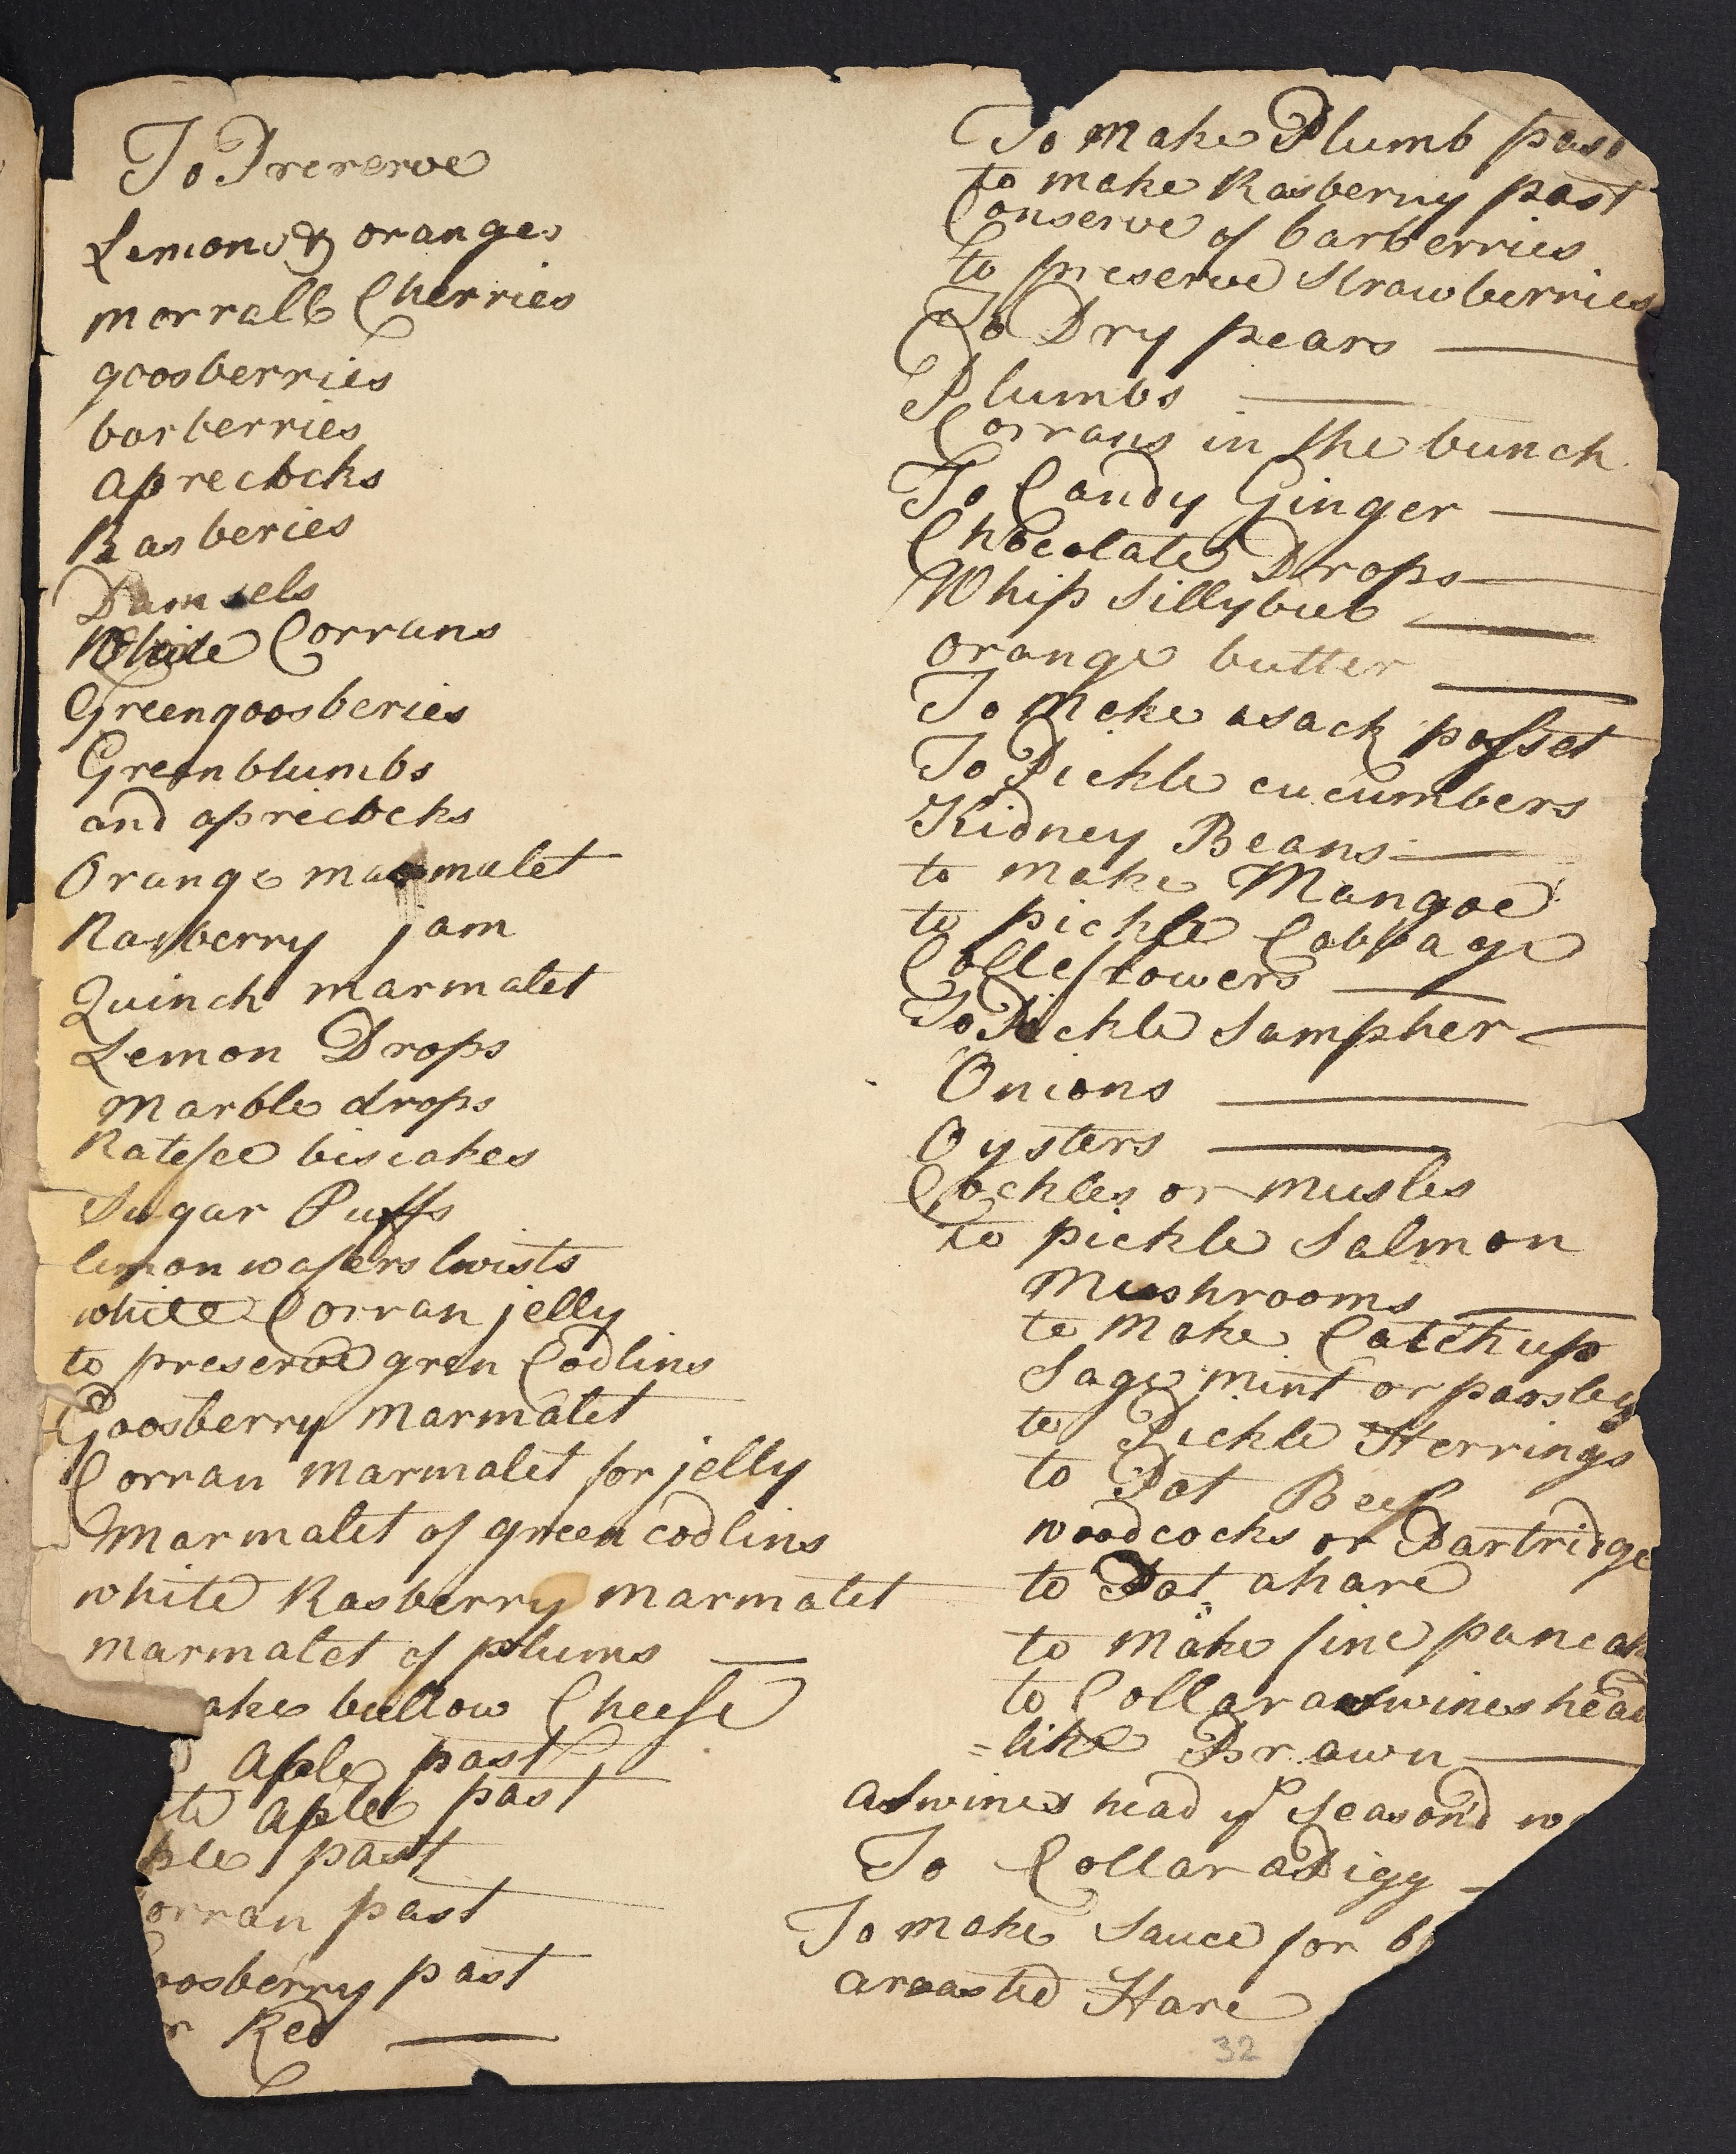 To Prererve
Lemons & oranges
morralb Cherries
goosberries
barberries
aprecbcks
Rasberies
Damsels
White Corrans
Greengoosberies
Greenblumbs
and apriecbcks
Orange marmalet
Rasberry jam
Quinch marmalet
Lemon Drops
marble drops
Ratefee biscakes
Sugar Puffs
lemon wafers twists
white Corran jelly
to preserve gren Codlins
Goosberry marmalet
Corran marmalet for jelly
Marmalet of green codlins
white Rasberry marmalet
marmalet of plums
ake bullow Cheese
aple past
te aple past
ple past
orran past
oosberry past
r Red
To make Plumb past
to make Rasberry past
Conserve of barberries
to preserve strawberries
To Dry pears
Plumbs
Corrans in the bunch
To Candy Ginger
Chocolate Drops
Whip sillybub
orange butter
To make asack posset
To Pickle cucumbers
Kidney Beans
to make Mangoe
to pickle Cabbage
Colleflowers
To Pickle Sampher
Onions
Oysters
Cockles or musles
to pickle Salmon
Mushrooms
to make Catchup
Sage mint or parsley
to Pickle Herrings
to Pot Beef
woodcocks or Partridge
to Pot ahare
to make fine pancak
to Collar aswines head
=like Brawn
aswines head yt season'd w
To Collar aPigg
To make Sauce for b
aroasted Hare
32